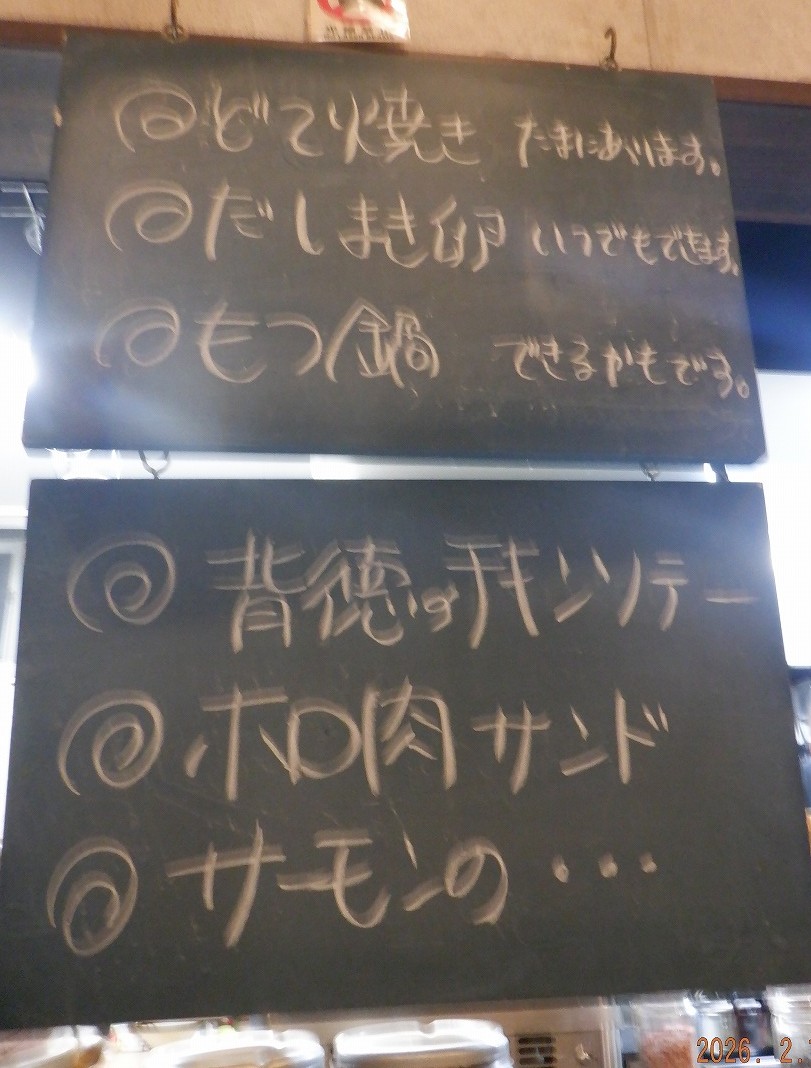 @どてり焼き たまにあります。
@だしまき卵 いつでもできます。
@もつ鍋 できるかもです。
@背徳のチキンソテー
@ホロ肉サンド
@サーモンの・・・
2026. 2.